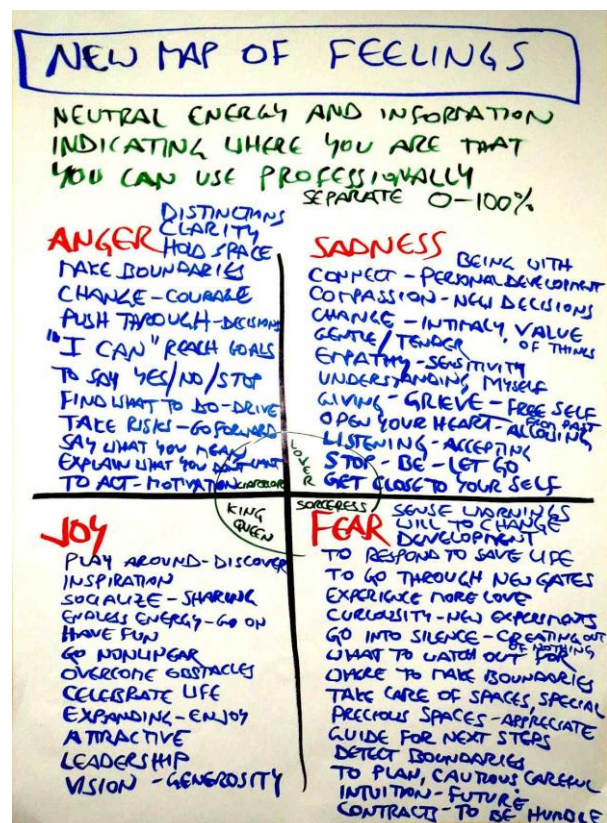 NEW MAP OF FEELINGS
NEUTRAL ENERGY AND INFORMATION
INDICATING WHERE YOU ARE THAT
YOU CAN USE PROFESSIONALLY
SEPARATE 0-100%
ANGER
DISTINCTIONS
CLARITY
HOLD SPACE
MAKE BOUNDARIES
CHANGE - COURAGE
PUSH THROUGH - DECISIONS
"I CAN" REACH GOALS
TO SAY YES/NO/STOP
FIND WHAT TO DO - DRIVE
TAKE RISKS - GO FORWARD
SAY WHAT YOU MEAN
EXPLAIN WHAT YOU WANT
TO ACT - MOTIVATION
WARRIOR
SADNESS
BEING WITH
CONNECT - PERSONAL DEVELOPMENT
COMPASSION - NEW DECISIONS
CHANGE - INTIMACY, VALUE
OF THINGS
GENTLE/TENDER
EMPATHY - SENSITIVITY
UNDERSTANDING MYSELF
GIVING - GRIEVE - FREE SELF
FROM PAST
OPEN YOUR HEART - ALLOWING
LISTENING - ACCEPTING
STOP - BE - LET GO
GET CLOSE TO YOUR SELF
LOVER
KING
QUEEN
SORCERESS
JOY
PLAY AROUND - DISCOVER
INSPIRATION
SOCIALIZE - SHARING
ENDLESS ENERGY - GO ON
HAVE FUN
GO NONLINEAR
OVERCOME OBSTACLES
CELEBRATE LIFE
EXPANDING - ENJOY
ATTRACTIVE
LEADERSHIP
VISION - GENEROSITY
FEAR
SENSE WARNINGS
WILL TO CHANGE
DEVELOPMENT
TO RESPOND TO SAVE LIFE
TO GO THROUGH NEW GATES
EXPERIENCE MORE LOVE
CURIOUSITY - NEW EXPERIMENTS
GO INTO SILENCE - CREATING OUT
OF NOTHING
WHAT TO WATCH OUT FOR
WHERE TO MAKE BOUNDARIES
TAKE CARE OF SPACES, SPECIAL
PRECIOUS SPACES - APPRECIATE
GUIDE FOR NEXT STEPS
DETECT BOUNDARIES
TO PLAN, CAUTIOUS CAREFUL
INTUITION - FUTURE
CONTRACTS - TO BE HUMBLE